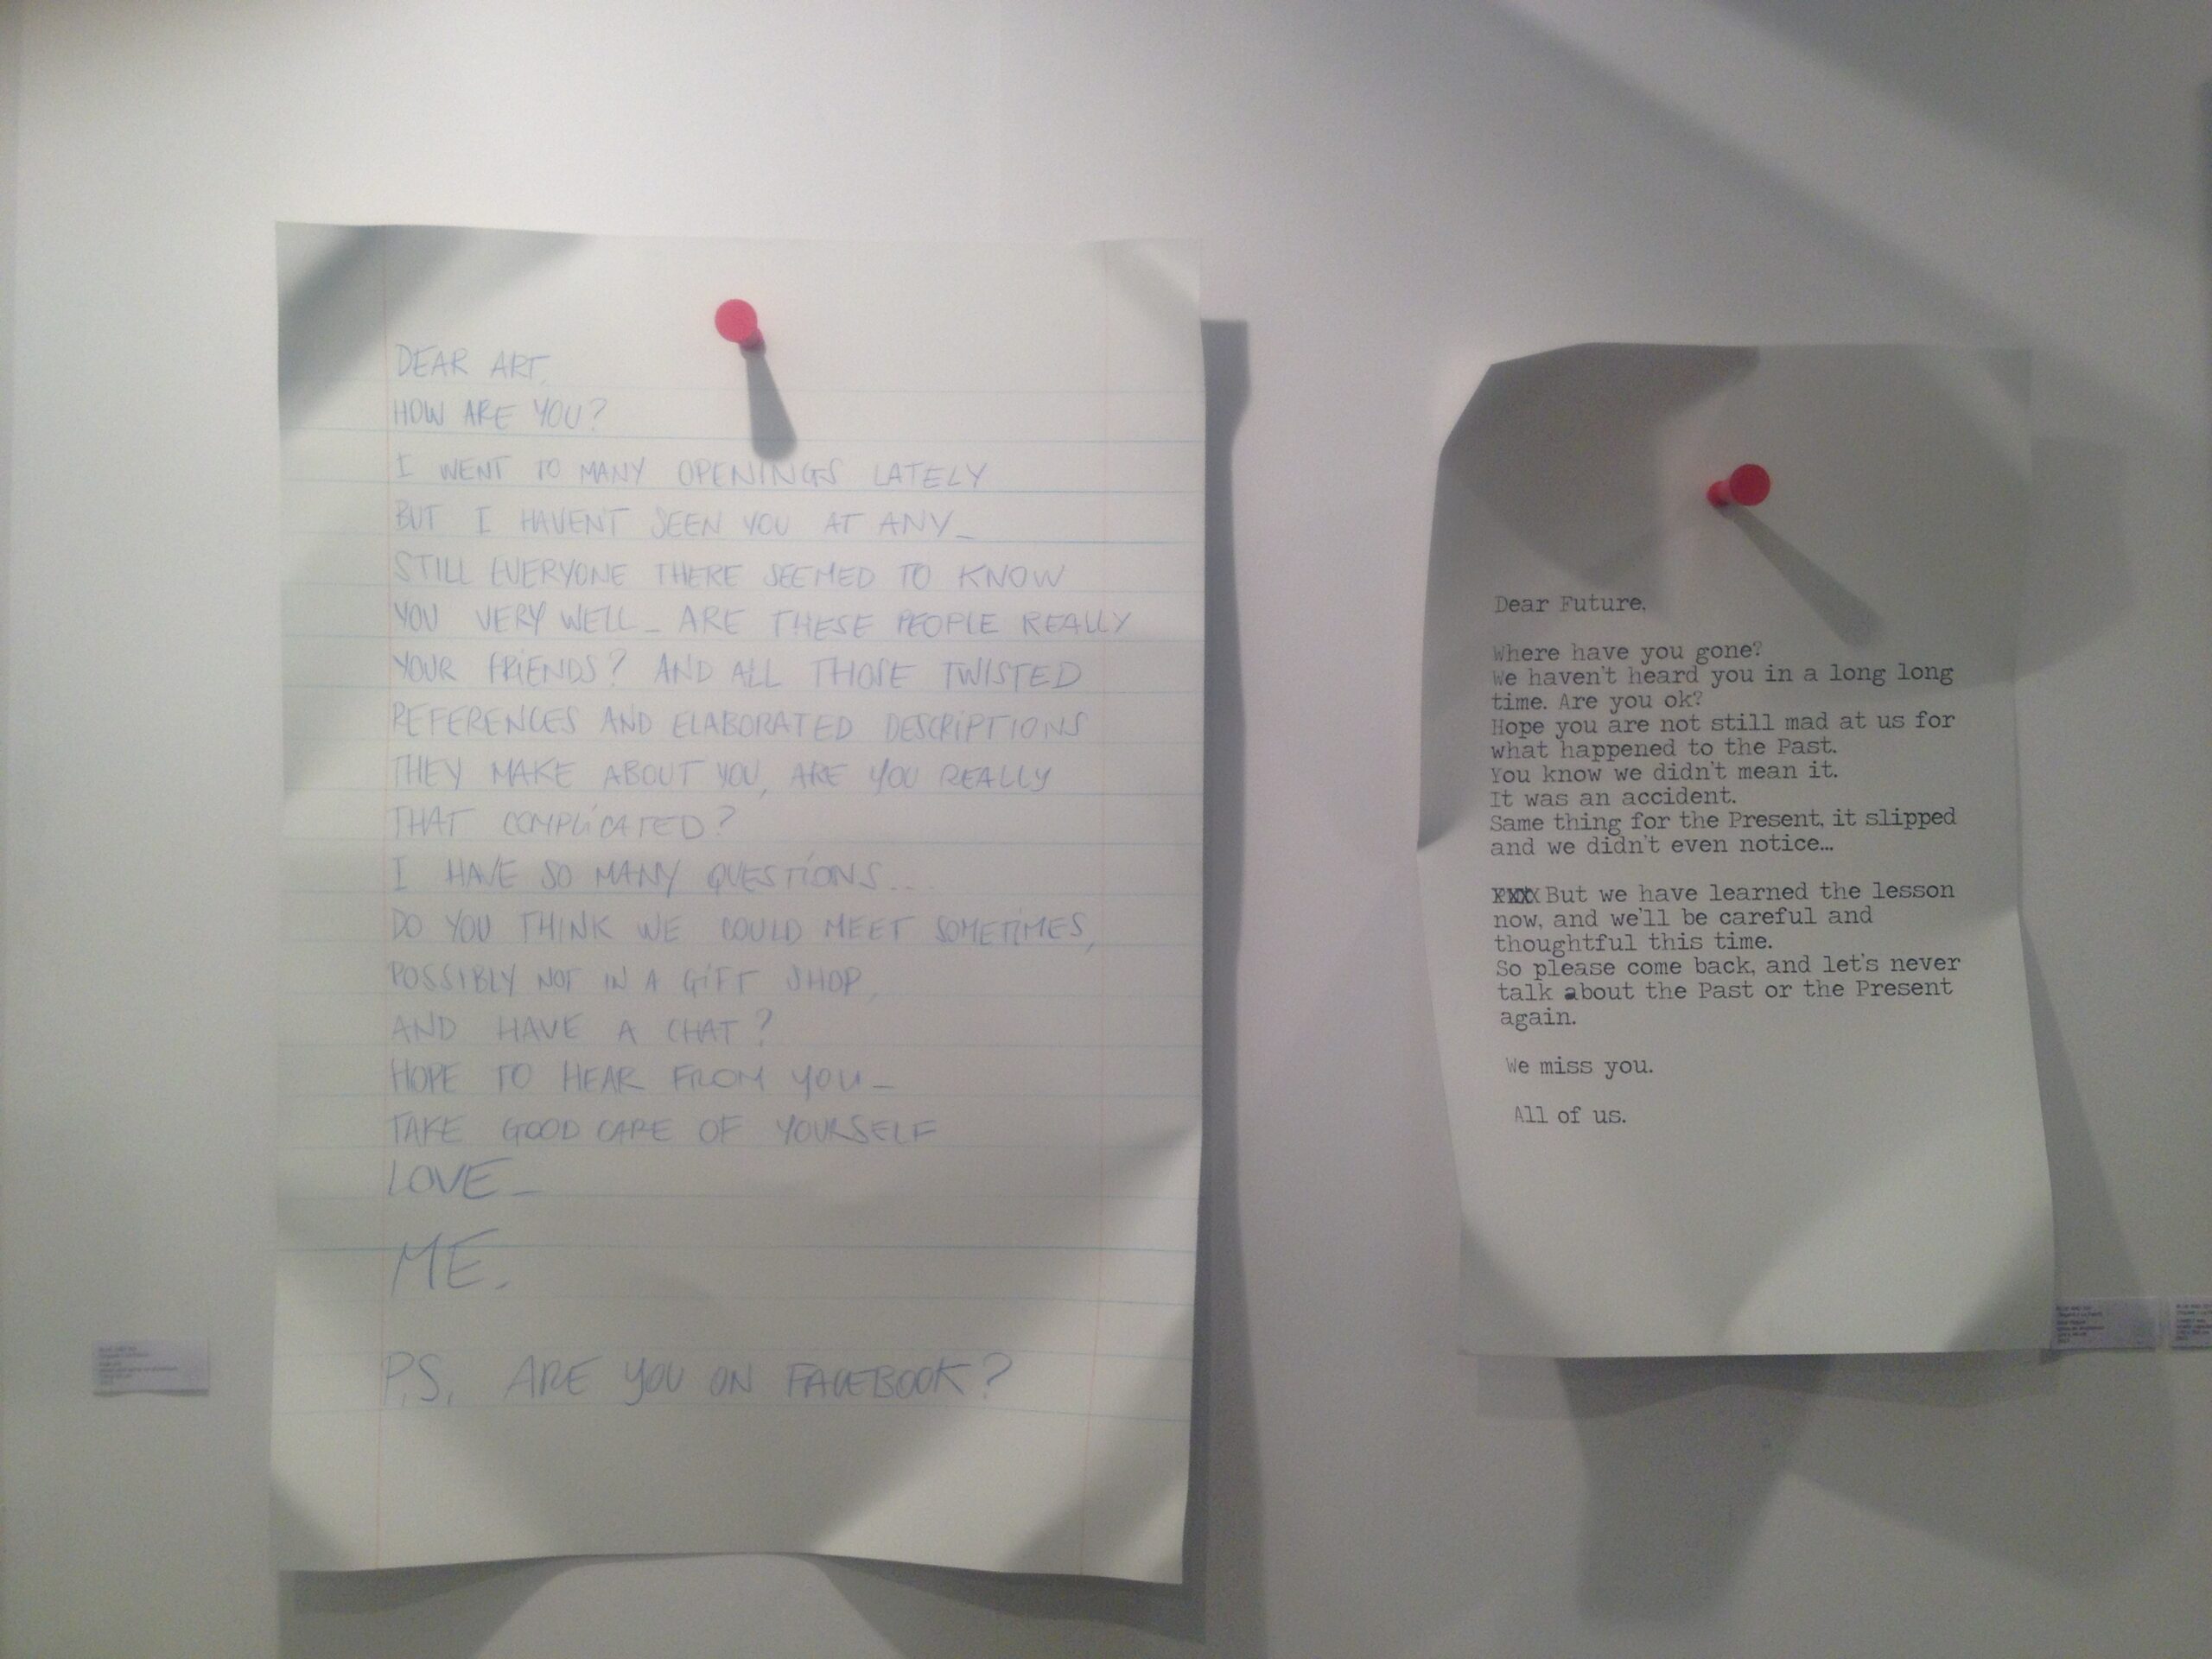 DEAR ART,
HOW ARE YOU?
I WENT TO MANY OPENINGS LATELY
BUT I HAVEN'T SEEN YOU AT ANY_
STILL EVERYONE THERE SEEMED TO KNOW
YOU VERY WELL_ ARE THESE PEOPLE REALLY
YOUR FRIENDS? AND ALL THOSE TWISTED
REFERENCES AND ELABORATED DESCRIPTIONS
THEY MAKE ABOUT YOU, ARE YOU REALLY
THAT COMPLICATED?
I HAVE SO MANY QUESTIONS...
DO YOU THINK WE COULD MEET SOMETIMES,
POSSIBLY NOT IN A GIFT SHOP,
AND HAVE A CHAT?
HOPE TO HEAR FROM YOU_
TAKE GOOD CARE OF YOURSELF
LOVE_
ME.
P.S. ARE YOU ON FACEBOOK?
Dear Future,
Where have you gone?
We haven't heard you in a long long
time. Are you ok?
Hope you are not still mad at us for
what happened to the Past.
You know we didn't mean it.
It was an accident.
Same thing for the Present, it slipped
and we didn't even notice...
But we have learned the lesson
now, and we'll be careful and
thoughtful this time.
So please come back, and let's never
talk about the Past or the Present
again.
We miss you.
All of us.